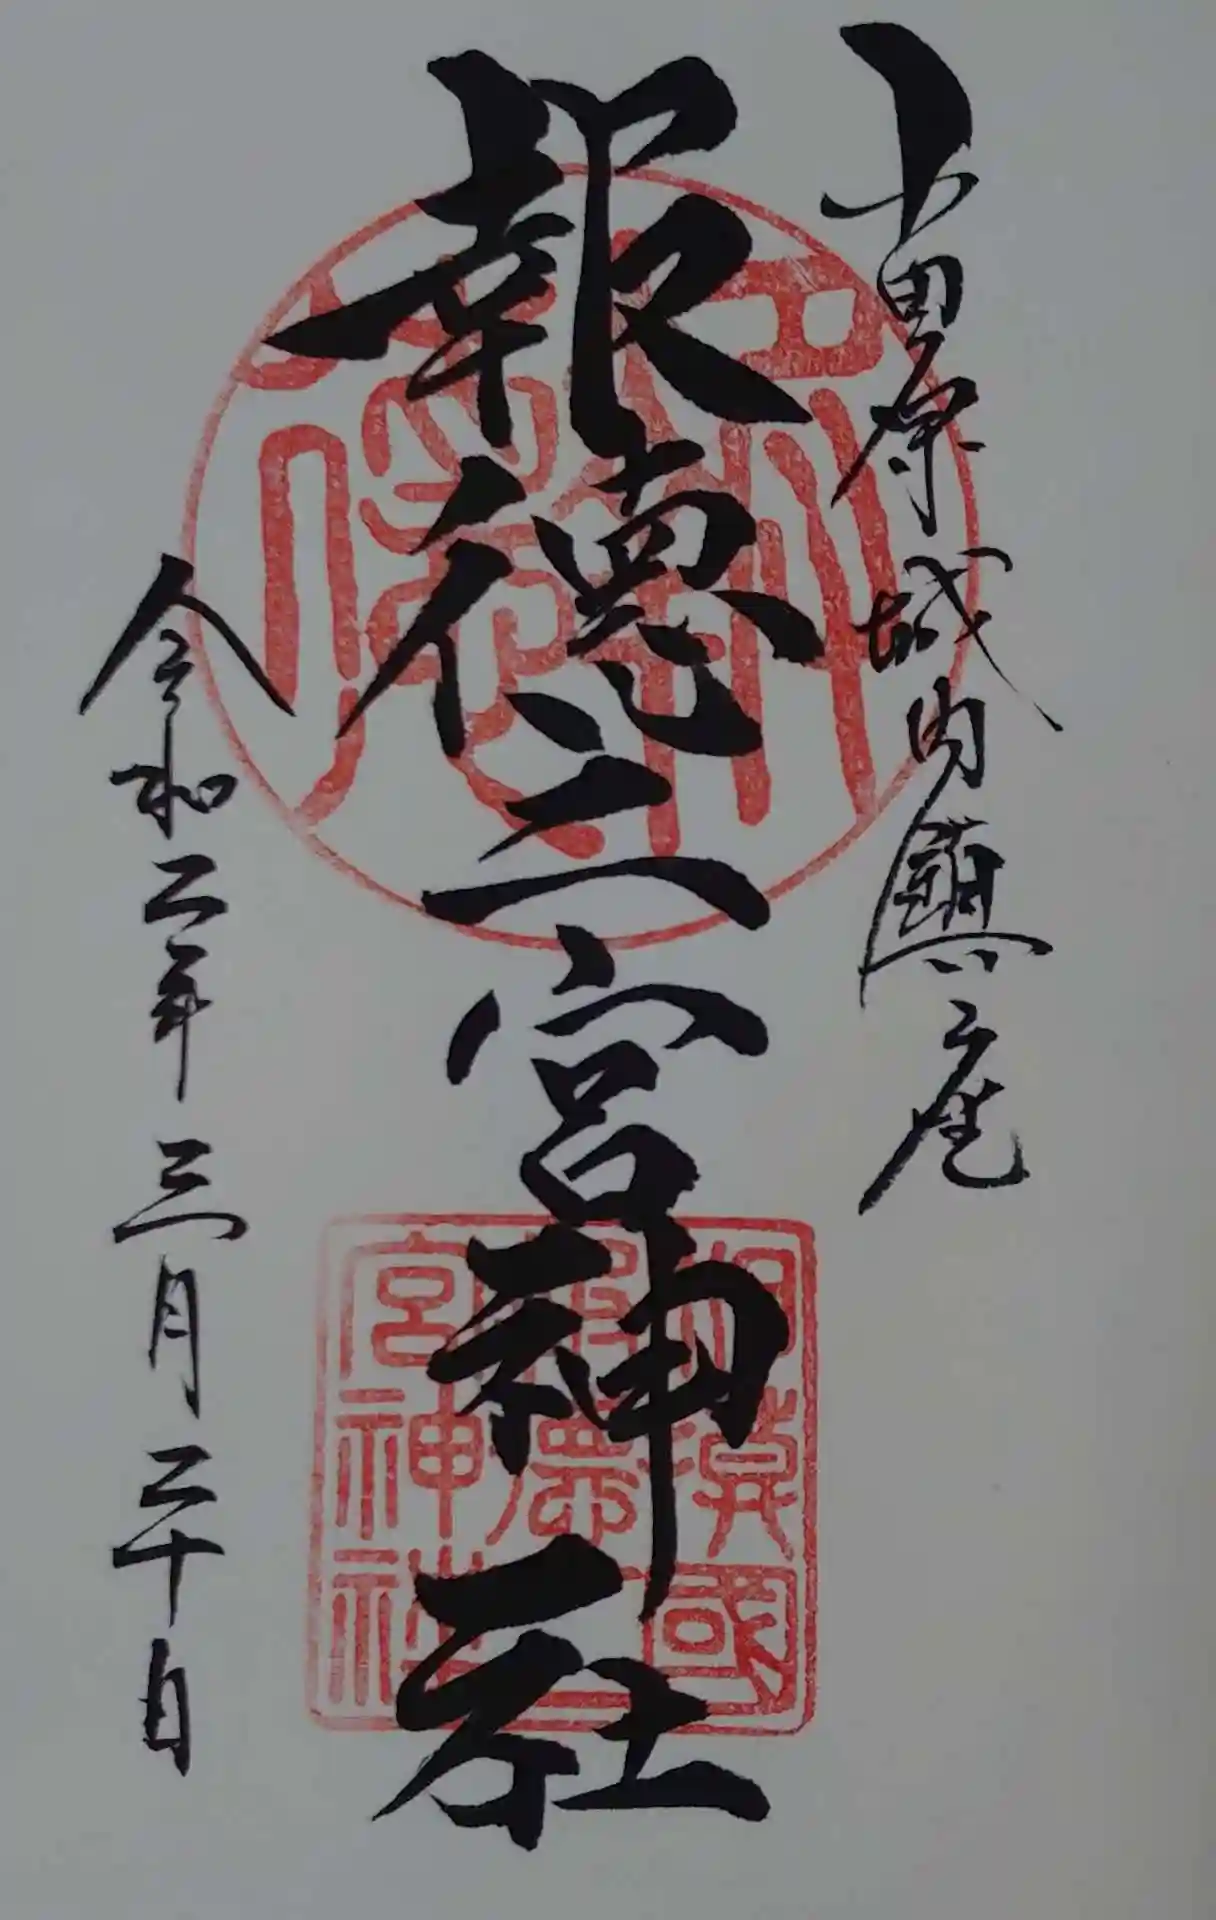 小田原城内鎮座
報徳二宮神社
相模國
報徳二
宮神社
令和二年三月二十日